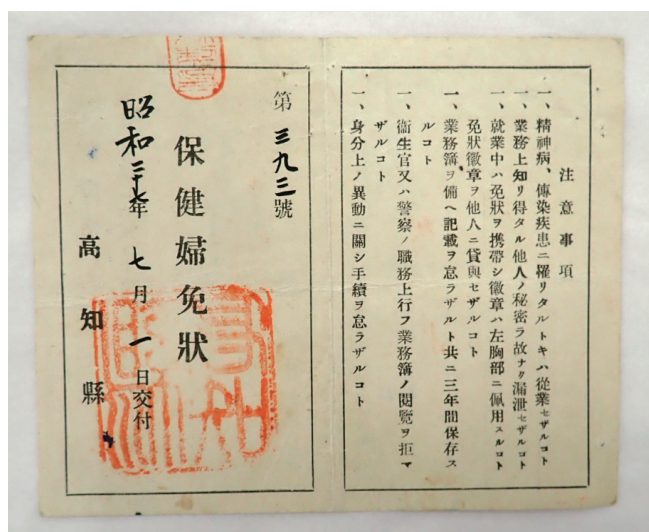 注意事項
一、精神病、傳染疾患ニ罹リタルトキハ從業セザルコト
一、業務上知リ得タル他人ノ秘密ヲ故ナク漏泄セザルコト
一、就業中ハ免狀ヲ携帶シ徽章ハ左胸部ニ佩用スルコト
免狀徽章ヲ他人ニ貸與セザルコト
一、業務簿ヲ備ヘ記載ヲ怠ラザルト共ニ三年間保存ス
ルコト
一、衞生官又ハ警察ノ職務上行フ業務簿ノ閲覽ヲ拒マ
ザルコト
一、身分上ノ異動ニ關シ手續ヲ怠ラザルコト
第三九三號
保健婦免狀
昭和年七月一日交付
高知縣